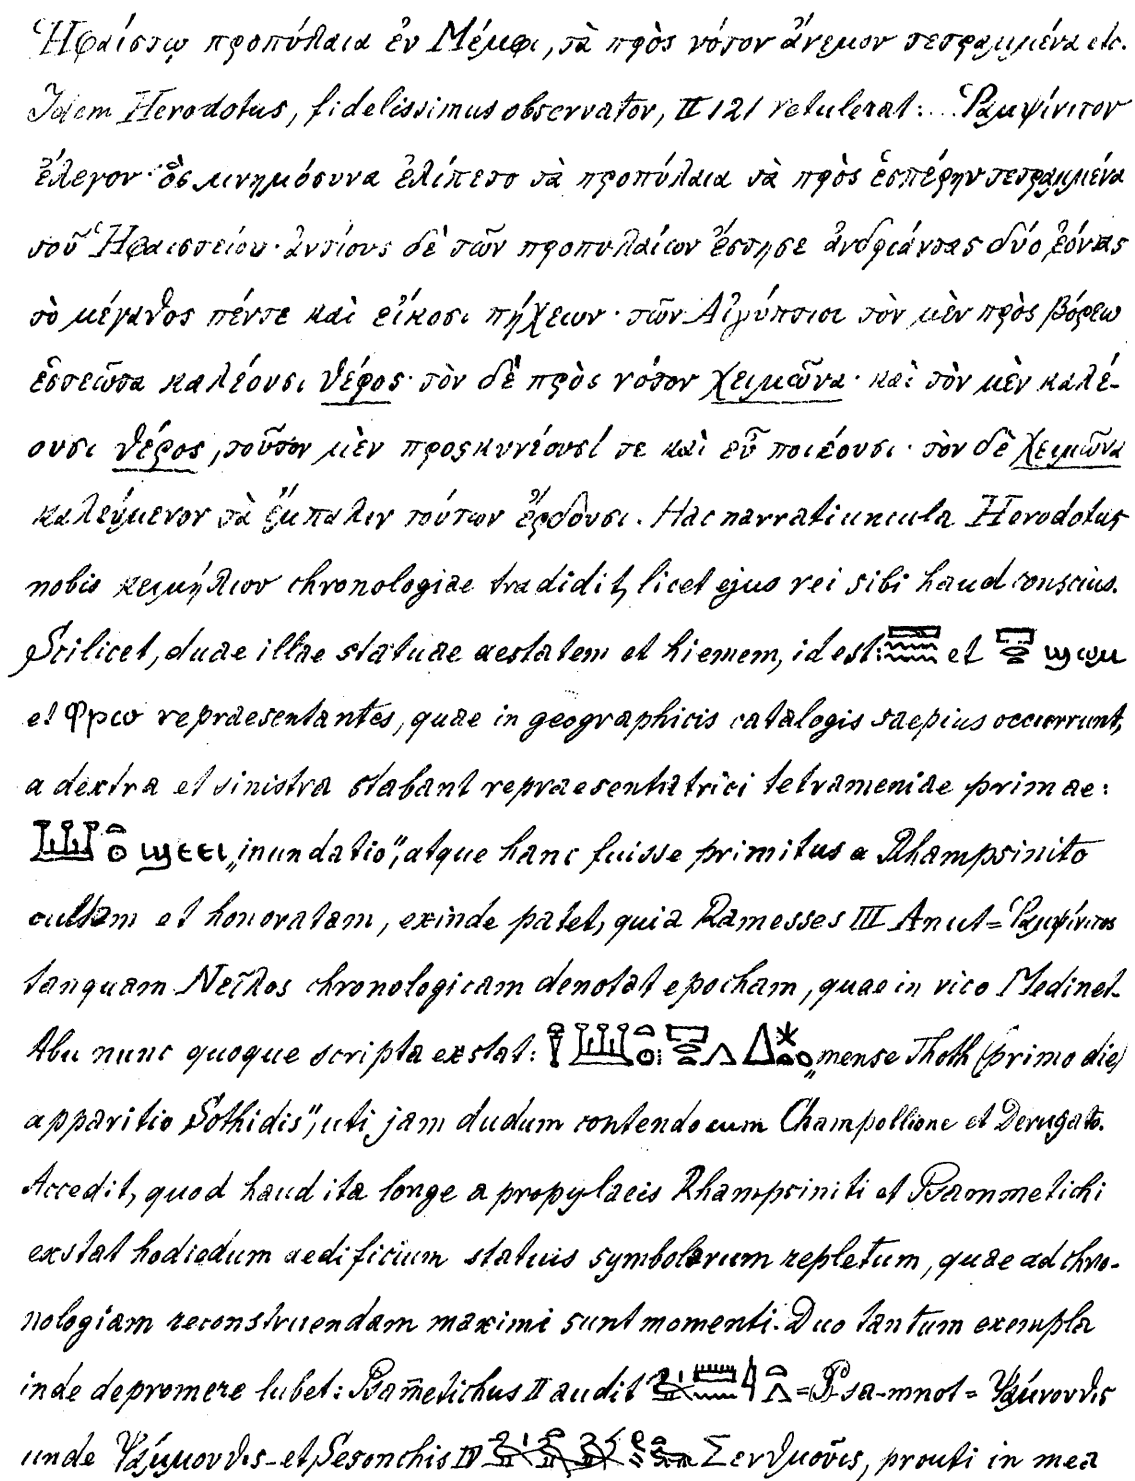 Ἡφαίστῳ προπύλαια ἐν Μέμφι, τὰ πρὸς νότον ἄνεμον τετραμμένα etc.
Idem Herodotus, fidelissimus observator, II 121 retulerat: ... Ῥαμψίνιτον
ἔλεγον· ὃς μνημόσυνα ἐλίπετο τὰ προπύλαια τὰ πρὸς ἑσπέρην τετραμμένα
τοῦ Ἡφαιστείου· ἀντίους δὲ τῶν προπυλαίων ἔστησε ἀνδριάντας δύο ἐόντας
τὸ μέγαθος πέντε καὶ εἴκοσι πήχεων· τῶν Αἰγύπτιοι τὸν μὲν πρὸς βόρεω
ἑστεῶτα καλέουσι θέρος· τὸν δὲ πρὸς νότον χειμῶνα· καὶ τὸν μὲν καλέ-
ουσι θέρος, τοῦτον μὲν προσκυνέουσί τε καὶ εὖ ποιέουσι· τὸν δὲ χειμῶνα
καλεύμενον τὰ ἔμπαλιν τούτων ἔρδουσι. Hac narratiuncula Herodotus
nobis κειμήλιον chronologiae tradidit, licet ejus rei sibi haud conscius.
Scilicet, duae illae statuae aestatem et hiemem, id est: et ϣⲱⲙ
et Φⲣⲱ repraesentantes, quae in geographicis catalogis saepius occurrunt,
a dextra et sinistra stabant repraesentatrici tetrameniae primae:
ϣⲉⲉⲓ „inundatio", atque hanc fuisse primitus a Rhampsinito
cultam et honoratam, exinde patet, quia Ramesses III Anut = Ῥαμψίνιτος
tanquam Νεῖλος chronologicam denotat epocham, quae in vico Medinet-
Abu nunc quoque scripta exstat: „mense Thoth (primo die)
apparitio Sothidis", uti jam dudum contendo cum Champollione et Derugato.
Accedit, quod haud ita longe a propylaeis Rhampsiniti et Psammetichi
exstat hodiedum aedificium statuis symbolarum repletum, quae ad chro-
nologiam reconstruendam maximi sunt momenti. Duo tantum exempla
inde depromere lubet: Psam̄etichus II audit = P-sa-mnot = Ψάμουθις
unde Ψάμμουθις et Sesonchis IV Σενθμοῦις, prouti in mea